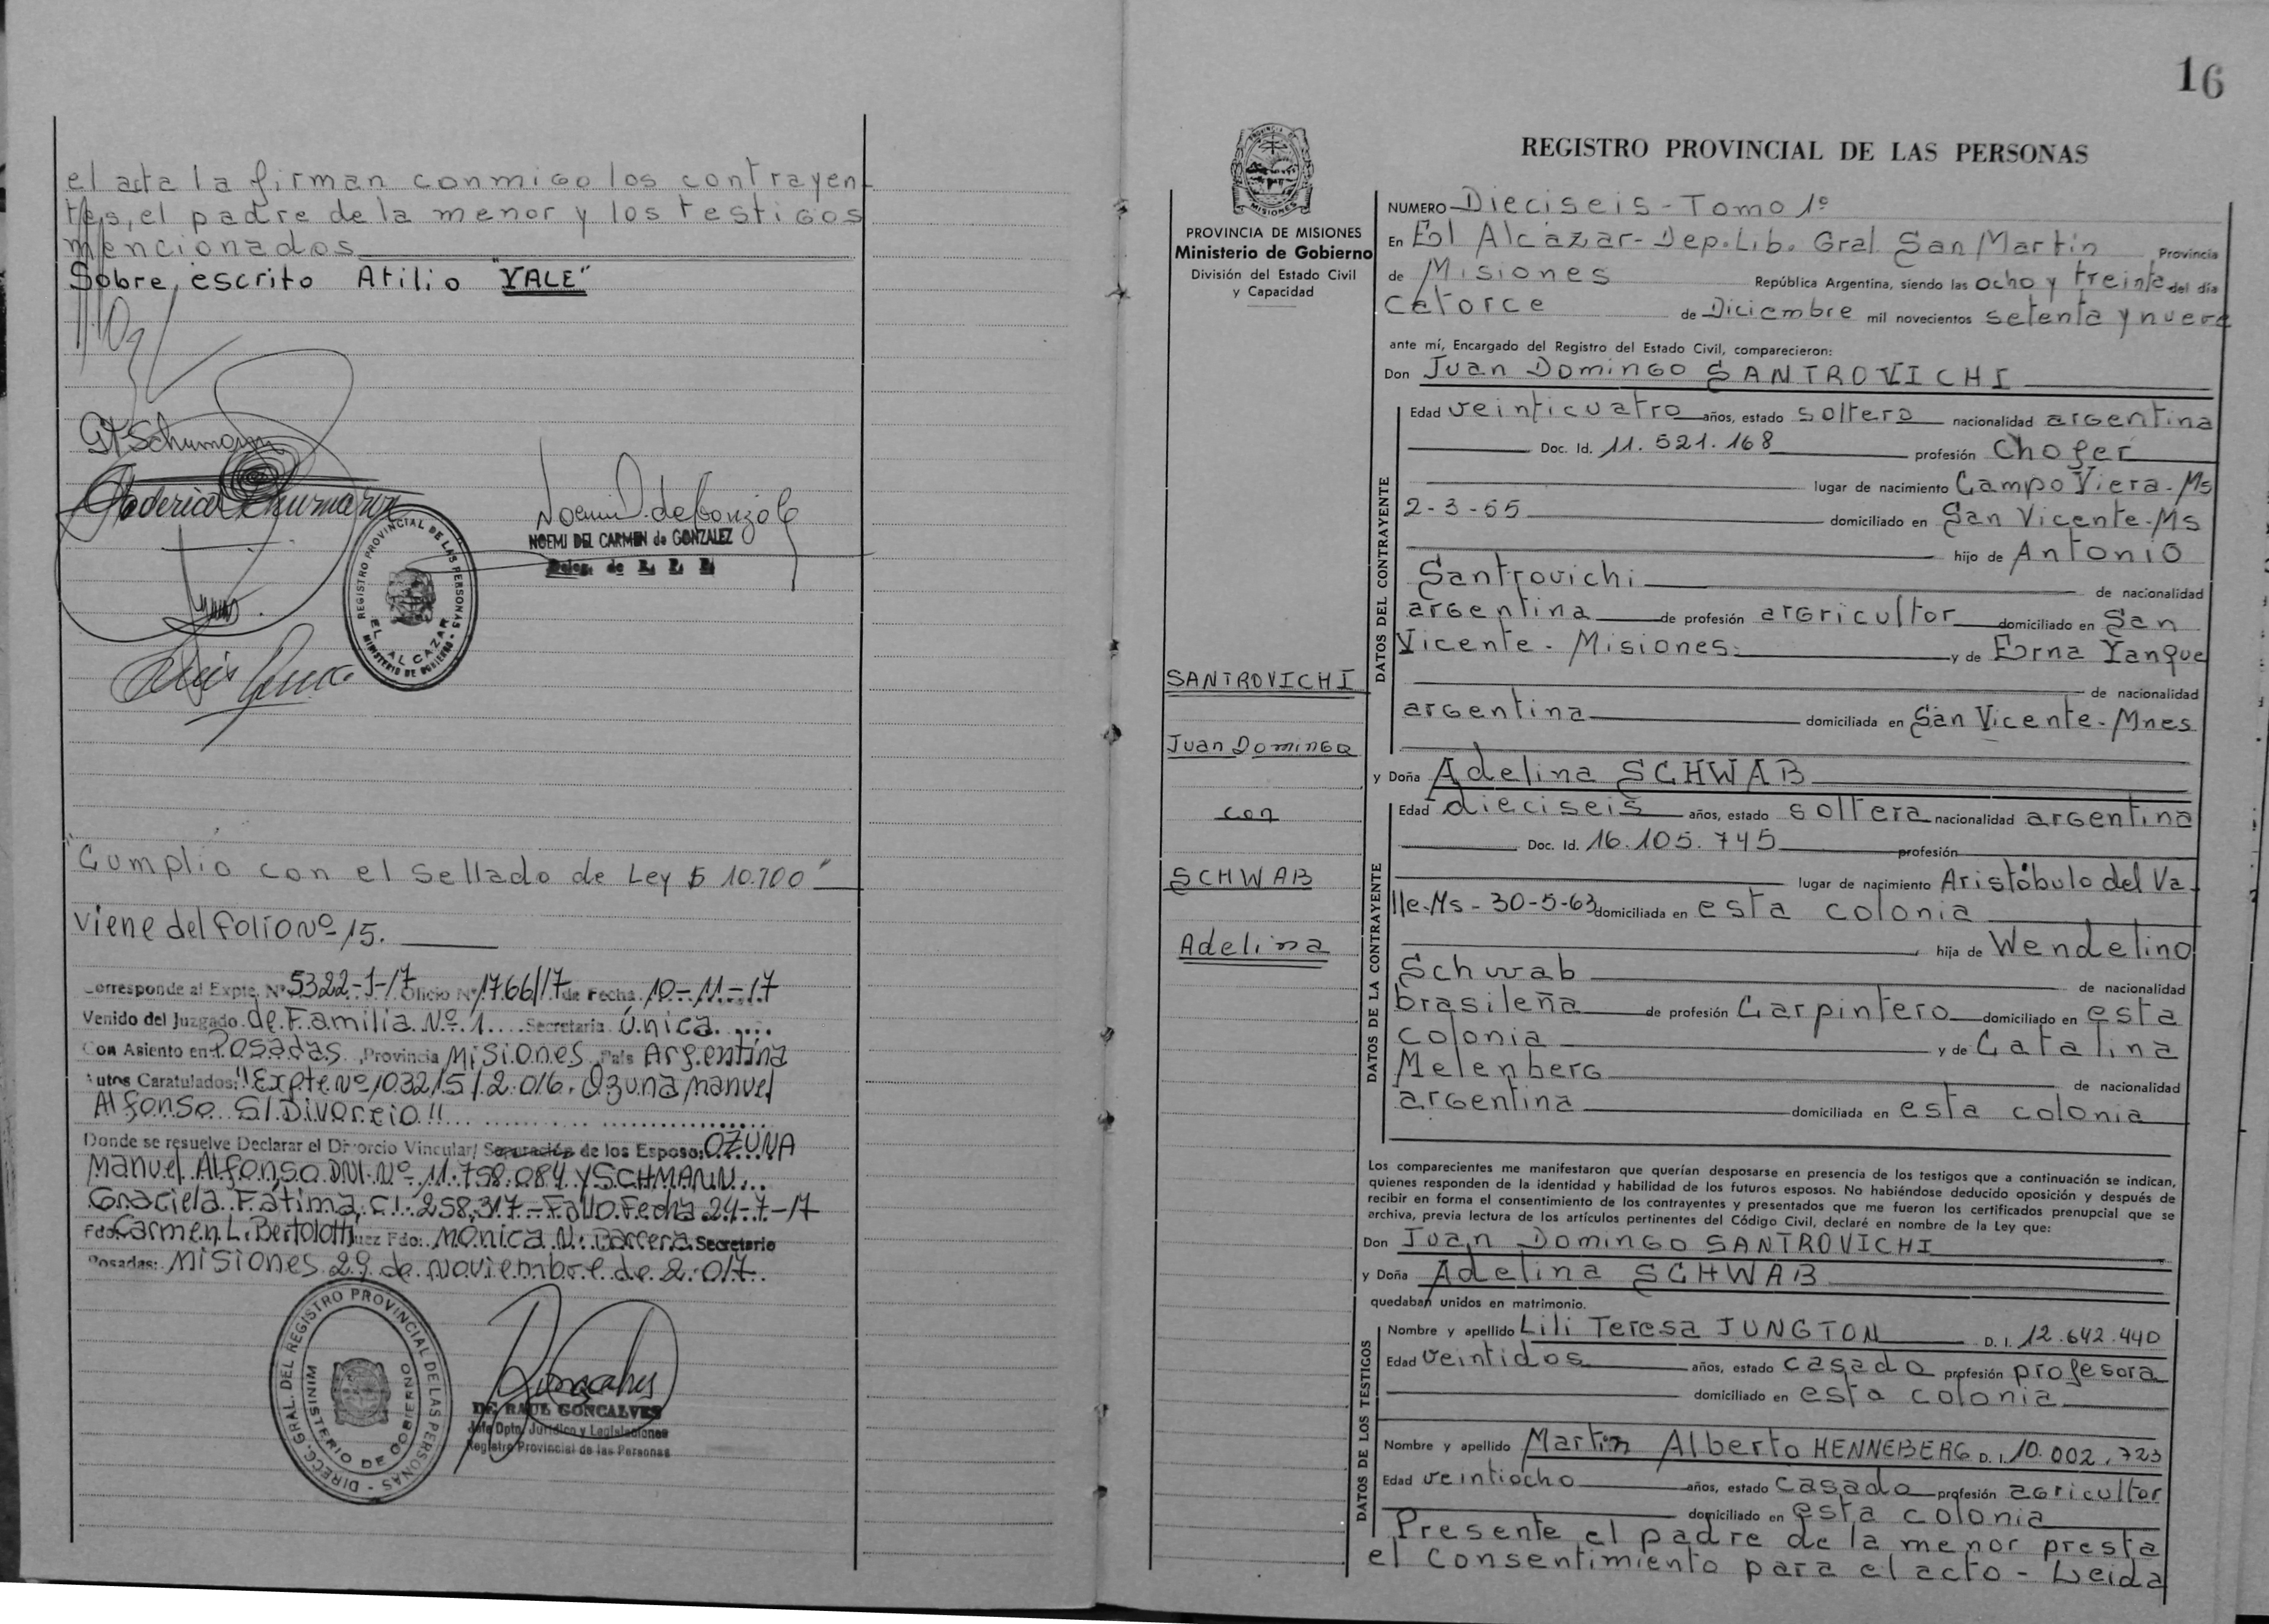 el acta la firman conmigo los contrayen
tes, el padre de la menor y los testigos
mencionados
Sobre escrito Atilio "VALE"
G F Schumann
Federico Schumann
Noemi D. de Gonzalez
NOEMI DEL CARMEN de GONZALEZ
Deleg. de R. P. P.
REGISTRO PROVINCIAL DE LAS PERSONAS
EL ALCAZAR
MINISTERIO DE GOBIERNO
"Cumplio con el sellado de Ley $ 10.700"
Viene del folio Nº 15.
Corresponde al Expte. Nº 5322-J-17 Oficio Nº 1766/17 de Fecha 10-11-17
Venido del Juzgado de Familia Nº 1 Secretaria Única
Con Asiento en Posadas Provincia Misiones País Argentina
Autos Caratulados: "Expte Nº 103215/2.016. Ozuna Manuel
Alfonso S/ Divorcio"
Donde se resuelve Declarar el Divorcio Vincular/ Separación de los Esposo: OZUNA
Manuel Alfonso DNI. Nº 11.758.084 y SCHMANN
Graciela Fátima C.I. 258.317 - Fallo Fecha 24-7-17
Fdo: Carmen L. Bertolotti Juez Fdo: Mónica N. Barrera Secretario
Posadas: Misiones 29 de Noviembre de 2.017.
DIRECC. GRAL. DEL REGISTRO PROVINCIAL DE LAS PERSONAS
MINISTERIO DE GOBIERNO
Goncalves
DE RAUL GONCALVES
Jefe Dpto. Jurídico y Legislaciones
Registro Provincial de las Personas
16
REGISTRO PROVINCIAL DE LAS PERSONAS
PROVINCIA DE MISIONES
Ministerio de Gobierno
División del Estado Civil
y Capacidad
SANTROVICHI
Juan Domingo
con
SCHWAB
Adelina
NUMERO Dieciseis - Tomo 1º
En El Alcázar - Dep. Lib. Gral San Martín Provincia
de Misiones República Argentina, siendo las ocho y treinta del día
catorce de Diciembre mil novecientos setenta y nueve
ante mí, Encargado del Registro del Estado Civil, comparecieron:
Don Juan Domingo SANTROVICHI
DATOS DEL CONTRAYENTE
Edad veinticuatro años, estado soltero nacionalidad argentina
Doc. Id. 11.521.168 profesión Chofer
lugar de nacimiento Campo Viera - Ms
2-3-55 domiciliado en San Vicente - Ms
hijo de Antonio
Santrovichi de nacionalidad
argentina de profesión argricultor domiciliado en San
Vicente - Misiones. y de Erna Yanque
de nacionalidad
argentina domiciliada en San Vicente - Mnes
y Doña Adelina SCHWAB
DATOS DE LA CONTRAYENTE
Edad dieciseis años, estado soltera nacionalidad argentina
Doc. Id. 16.105.745 profesión
lugar de nacimiento Aristóbulo del Va-
lle. Ms - 30-5-63 domiciliada en esta colonia
hija de Wendelino
Schwab de nacionalidad
brasileña de profesión Carpintero domiciliado en esta
colonia y de Catalina
Melenberg de nacionalidad
argentina domiciliada en esta colonia
Los comparecientes me manifestaron que querían desposarse en presencia de los testigos que a continuación se indican,
quienes responden de la identidad y habilidad de los futuros esposos. No habiéndose deducido oposición y después de
recibir en forma el consentimiento de los contrayentes y presentados que me fueron los certificados prenupcial que se
archiva, previa lectura de los artículos pertinentes del Código Civil, declaré en nombre de la Ley que:
Don Juan Domingo SANTROVICHI
y Doña Adelina SCHWAB
quedaban unidos en matrimonio.
DATOS DE LOS TESTIGOS
Nombre y apellido Lili Teresa JUNGTON D. I. 12.642.440
Edad veintidos años, estado casada profesión profesora
domiciliado en esta colonia
Nombre y apellido Martin Alberto HENNEBERG D. I. 10.002.723
Edad veintiocho años, estado casado profesión agricultor
domiciliado en esta colonia
Presente el padre de la menor presta
el consentimiento para el acto - Leida